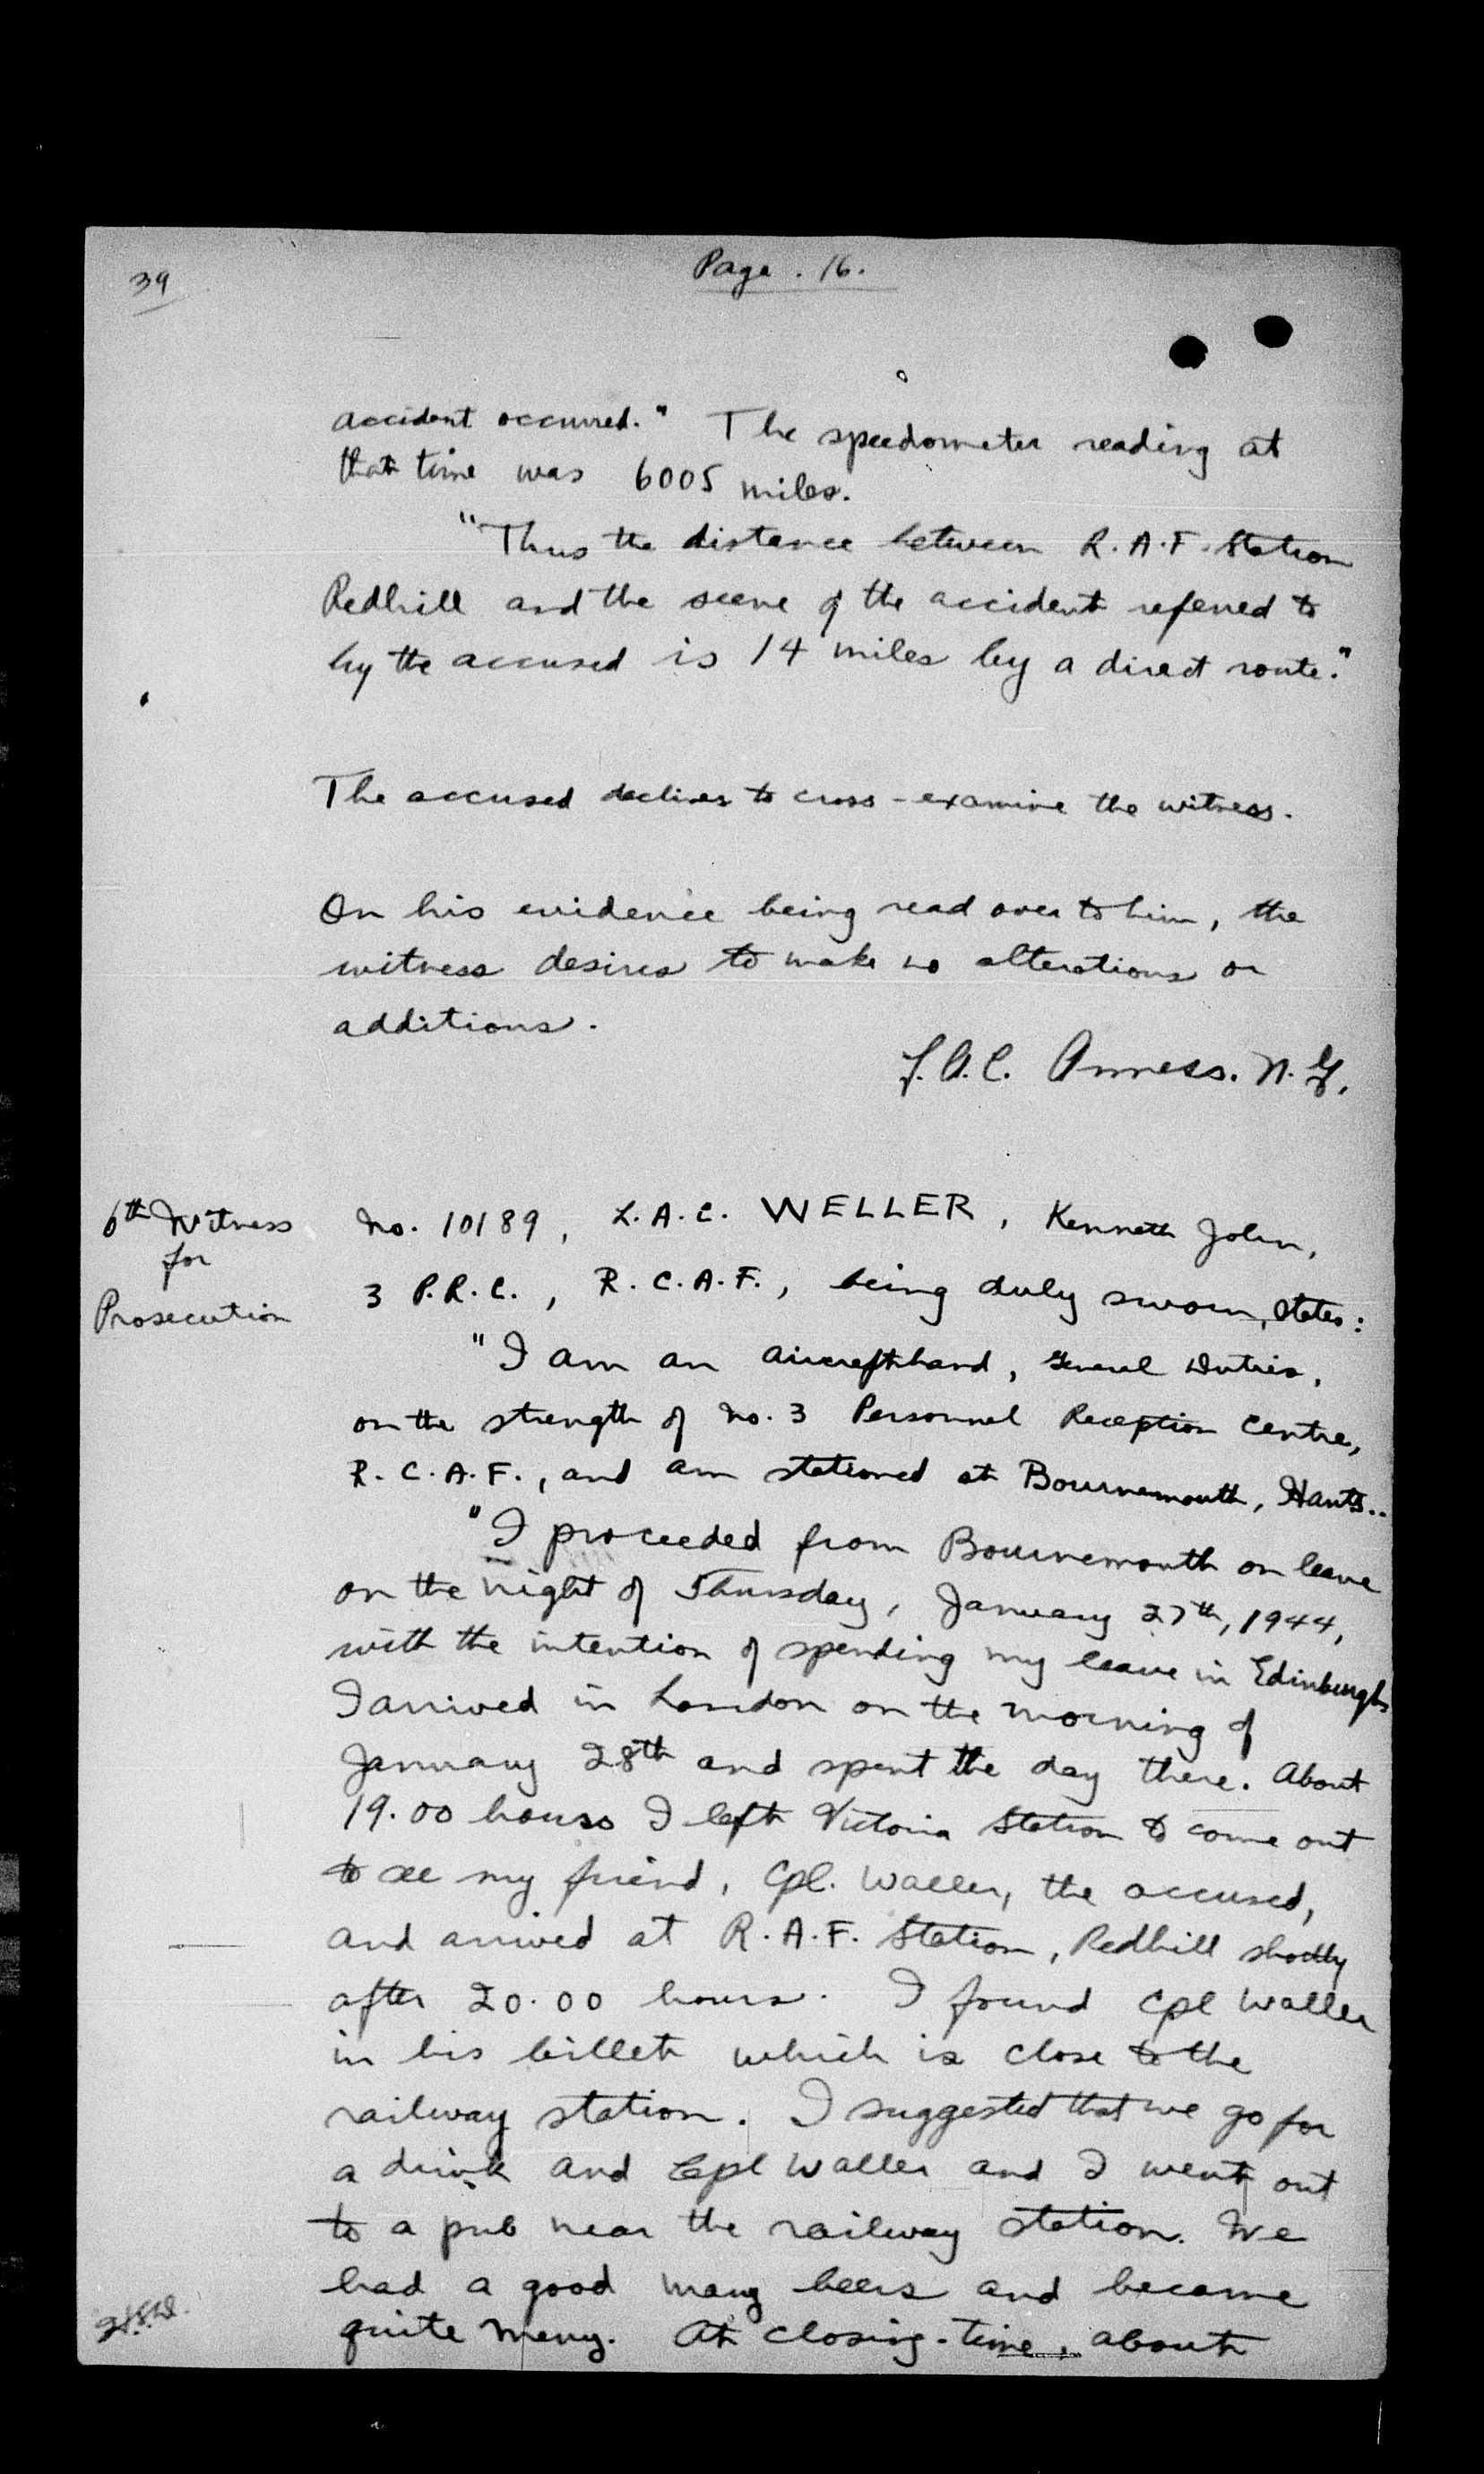 39
Page. 16.
accident occurred." The speedometer reading at
that time was 6005 miles.
"Thus the distance between R.A.F. Station
Redhill and the scene of the accident referred to
by the accused is 14 miles by a direct route."
The accused declines to cross-examine the witness.
On his evidence being read over to him, the
witness desires to make no alterations or
additions.
L.A.C. Anness. N. G.
6th Witness
for
Prosecution
No. 10189, L.A.C. WELLER, Kenneth John,
3 P.R.C., R.C.A.F., being duly sworn, states:
"I am an aircrafthand, General Duties,
on the strength of No. 3 Personnel Reception Centre,
R.C.A.F., and am stationed at Bournemouth, Hants..
"I proceeded from Bournemouth on leave
on the night of Thursday, January 27th, 1944,
with the intention of spending my leave in Edinburgh
I arrived in London on the morning of
January 28th and spent the day there. About
19.00 hours I left Victoria Station to come out
to see my friend, Cpl. Waller, the accused,
and arrived at R.A.F. Station, Redhill shortly
after 20.00 hours. I found Cpl Waller
in his billet which is close to the
railway station. I suggested that we go for
a drink and Cpl Waller and I went out
to a pub near the railway station. We
had a good many beers and became
quite merry. At closing-time, about